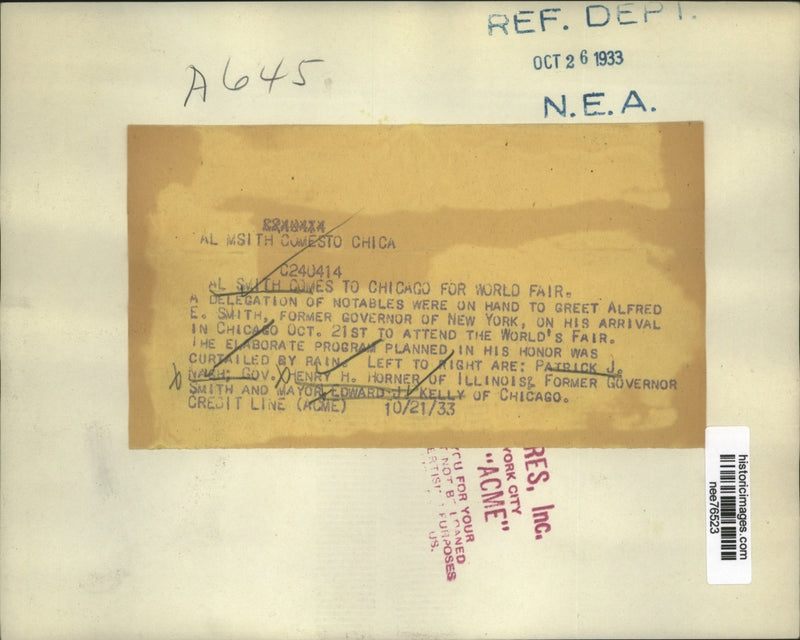 REF. DEPT.
OCT 26 1933
N.E.A.
A645
AL MSITH COMESTO CHICA
C240414
AL SMITH COMES TO CHICAGO FOR WORLD FAIR.
A DELEGATION OF NOTABLES WERE ON HAND TO GREET ALFRED
E. SMITH, FORMER GOVERNOR OF NEW YORK, ON HIS ARRIVAL
IN CHICAGO OCT. 21ST TO ATTEND THE WORLD'S FAIR.
THE ELABORATE PROGRAM PLANNED IN HIS HONOR WAS
CURTAILED BY RAIN. LEFT TO RIGHT ARE: PATRICK J.
NASH; GOV. HENRY H. HORNER OF ILLINOIS; FORMER GOVERNOR
SMITH AND MAYOR EDWARD J. KELLY OF CHICAGO.
CREDIT LINE (ACME) 10/21/33
RES, Inc.
YORK CITY
"ACME"
YOU FOR YOUR
NOT BE LOANED
PURPOSES
US.
historicimages.com
nee76523